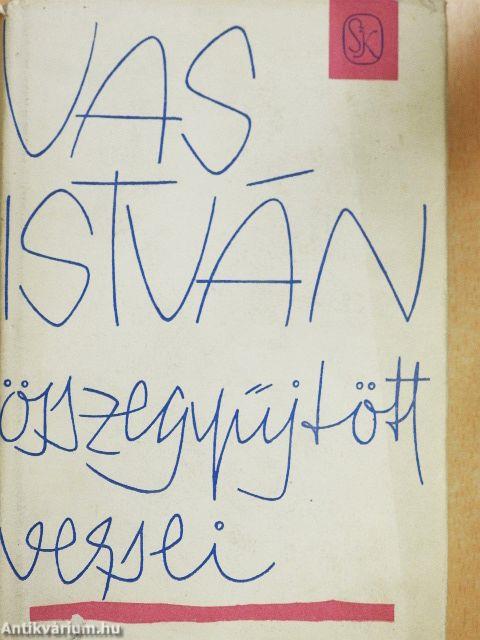 SZK
VAS
ISTVÁN
összegyűjtött
versei
Antikvárium.hu